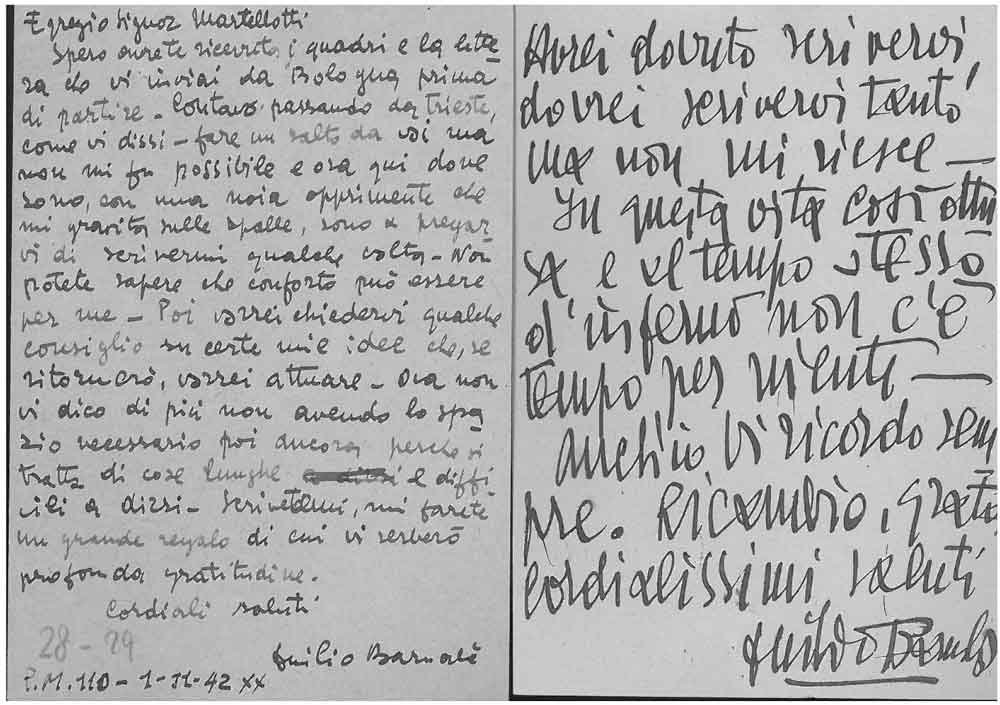 Egregio Signor Martellotti
Spero avrete ricevuto i quadri e la lette
ra che vi inviai da Bologna prima
di partire - Contavo passando da Trieste,
come vi dissi - fare un salto da voi ma
non mi fu possibile e ora qui dove
sono, con una noia opprimente che
mi gravita sulle spalle, sono a pregar
vi di scrivermi qualche volta - Non
potete sapere che conforto può essere
per me - Poi vorrei chiedervi qualche
consiglio su certe mie idee che, se
ritornerò, vorrei attuare - Ora non
vi dico di più non avendo lo spa
zio necessario poi ancora perchè si
tratta di cose lunghe e diffi
cili a dirsi - Scrivetemi, mi farete
un grande regalo di cui vi serberò
profonda gratitudine.
Cordiali saluti
28-29
Emilio
P.M. 110 - 1-11-42 XX
Avrei dovuto scrivervi,
dovrei scrivervi tanto
ma non mi riesce —
In questa vita così ottu
sa e al tempo stesso
d'inferno non c'è
tempo per niente —
Anch'io vi ricordo sem
pre. Ricambio, grato
cordialissimi saluti